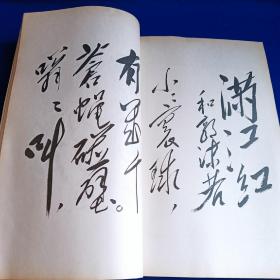 满江红
和郭沫若
小小寰球，
有几个
苍蝇碰壁。
嗡嗡叫，